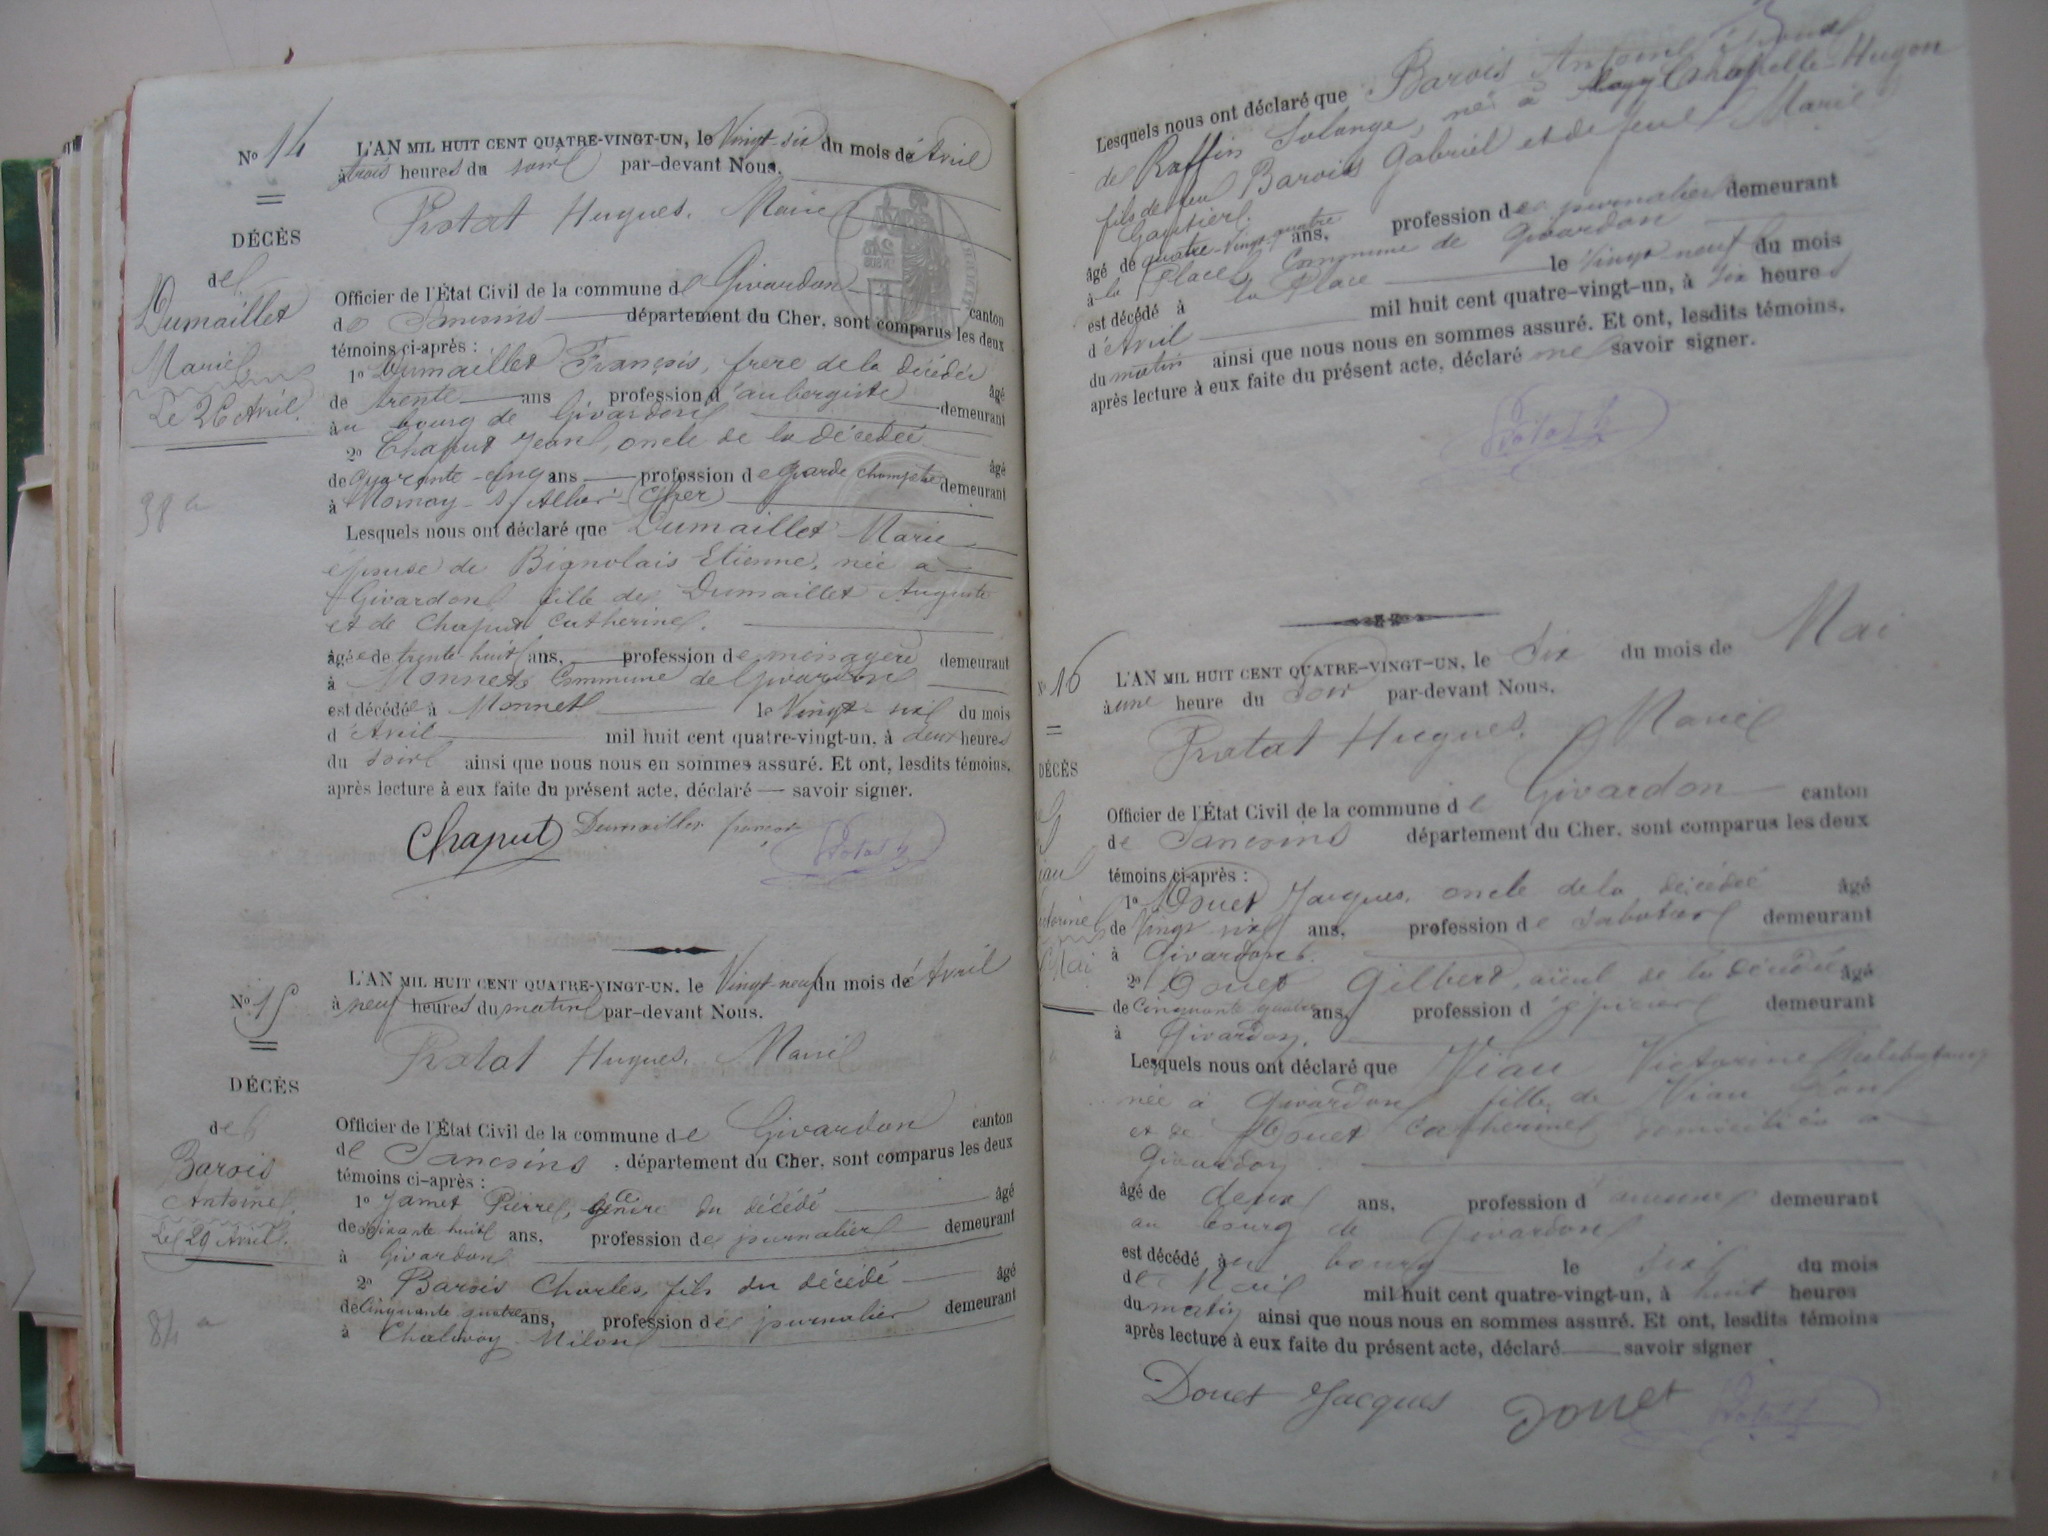 No 14
DÉCÈS
de
Dumaillet
Marie
Le 26 Avril.
38 a
L'AN MIL HUIT CENT QUATRE-VINGT-UN, le Vingt-six du mois de Avril
à trois heures du soir par-devant Nous,
Protat Hugues, Maire
Officier de l'État Civil de la commune de Givardon canton
de Sancoins département du Cher, sont comparus les deux
témoins ci-après :
1o Dumaillet François, frere de la décédée âgé
de trente ans profession d'aubergiste demeurant
au bourg de Givardon
2o Chaput Jean, oncle de la décédée âgé
de quarante-cinq ans profession de garde champetre demeurant
à Mornay-s/Allier (Cher)
Lesquels nous ont déclaré que Dumaillet Marie
épouse de Bignolais Etienne, née à
Givardon fille de Dumaillet Auguste
et de Chaput Catherine.
âgée de trente-huit ans, profession de ménagère demeurant
à Monnets Commune de Givardon
est décédée à Monnet le Vingt-six du mois
d'Avril mil huit cent quatre-vingt-un, à deux heures
du soir ainsi que nous nous en sommes assuré. Et ont, lesdits témoins,
après lecture à eux faite du présent acte, déclaré savoir signer.
Chaput Dumaillet françois Protat h
No 15
DÉCÈS
de
Barois
Antoine.
Le 29 Avril.
84 a
L'AN MIL HUIT CENT QUATRE-VINGT-UN, le Vingt-neuf du mois de Avril
à neuf heures du matin par-devant Nous,
Protat Hugues, Maire
Officier de l'État Civil de la commune de Givardon canton
de Sancoins, département du Cher, sont comparus les deux
témoins ci-après :
1o Jamet Pierre, gendre du décédé âgé
de soixante huit ans, profession de journalier demeurant
à Givardon
2o Barois Charles, fils du décédé âgé
de Cinquante quatre ans, profession de journalier demeurant
à Chalivoy-Milon
Lesquels nous ont déclaré que Barois Antoine
de Raffin Solange, né à Chapelle-Hugon
fils de feu Barois Gabriel et de feue Marie
Gautier.
âgé de quatre-vingt-quatre ans, profession de journalier demeurant
à la Place, Commune de Givardon
est décédé à la Place le Vingt neuf du mois
d'Avril mil huit cent quatre-vingt-un, à six heures
du matin ainsi que nous nous en sommes assuré. Et ont, lesdits témoins,
après lecture à eux faite du présent acte, déclaré ne savoir signer.
Protat h
No 16
DÉCÈS
Mai
L'AN MIL HUIT CENT QUATRE-VINGT-UN, le Six du mois de Mai
à une heure du Soir par-devant Nous,
Protat Hugues, Maire
Officier de l'État Civil de la commune de Givardon canton
de Sancoins département du Cher, sont comparus les deux
témoins ci-après :
1o Douet Jacques, oncle de la décédée âgé
de Vingt six ans, profession de sabotier demeurant
à Givardon.
2o Douet Gilbert, aïeul de la décédée âgé
de Cinquante quatre ans, profession d'épicier demeurant
à Givardon.
Lesquels nous ont déclaré que Viau Victorine
née à Givardon fille de Viau
et de Douet Catherine domiciliés à
Givardon
âgé de deux ans, profession d'aucune demeurant
au bourg de Givardon
est décédé au bourg le six du mois
de Mai mil huit cent quatre-vingt-un, à huit heures
du matin ainsi que nous nous en sommes assuré. Et ont, lesdits témoins
après lecture à eux faite du présent acte, déclaré savoir signer
Douet Jacques Douet Protat h